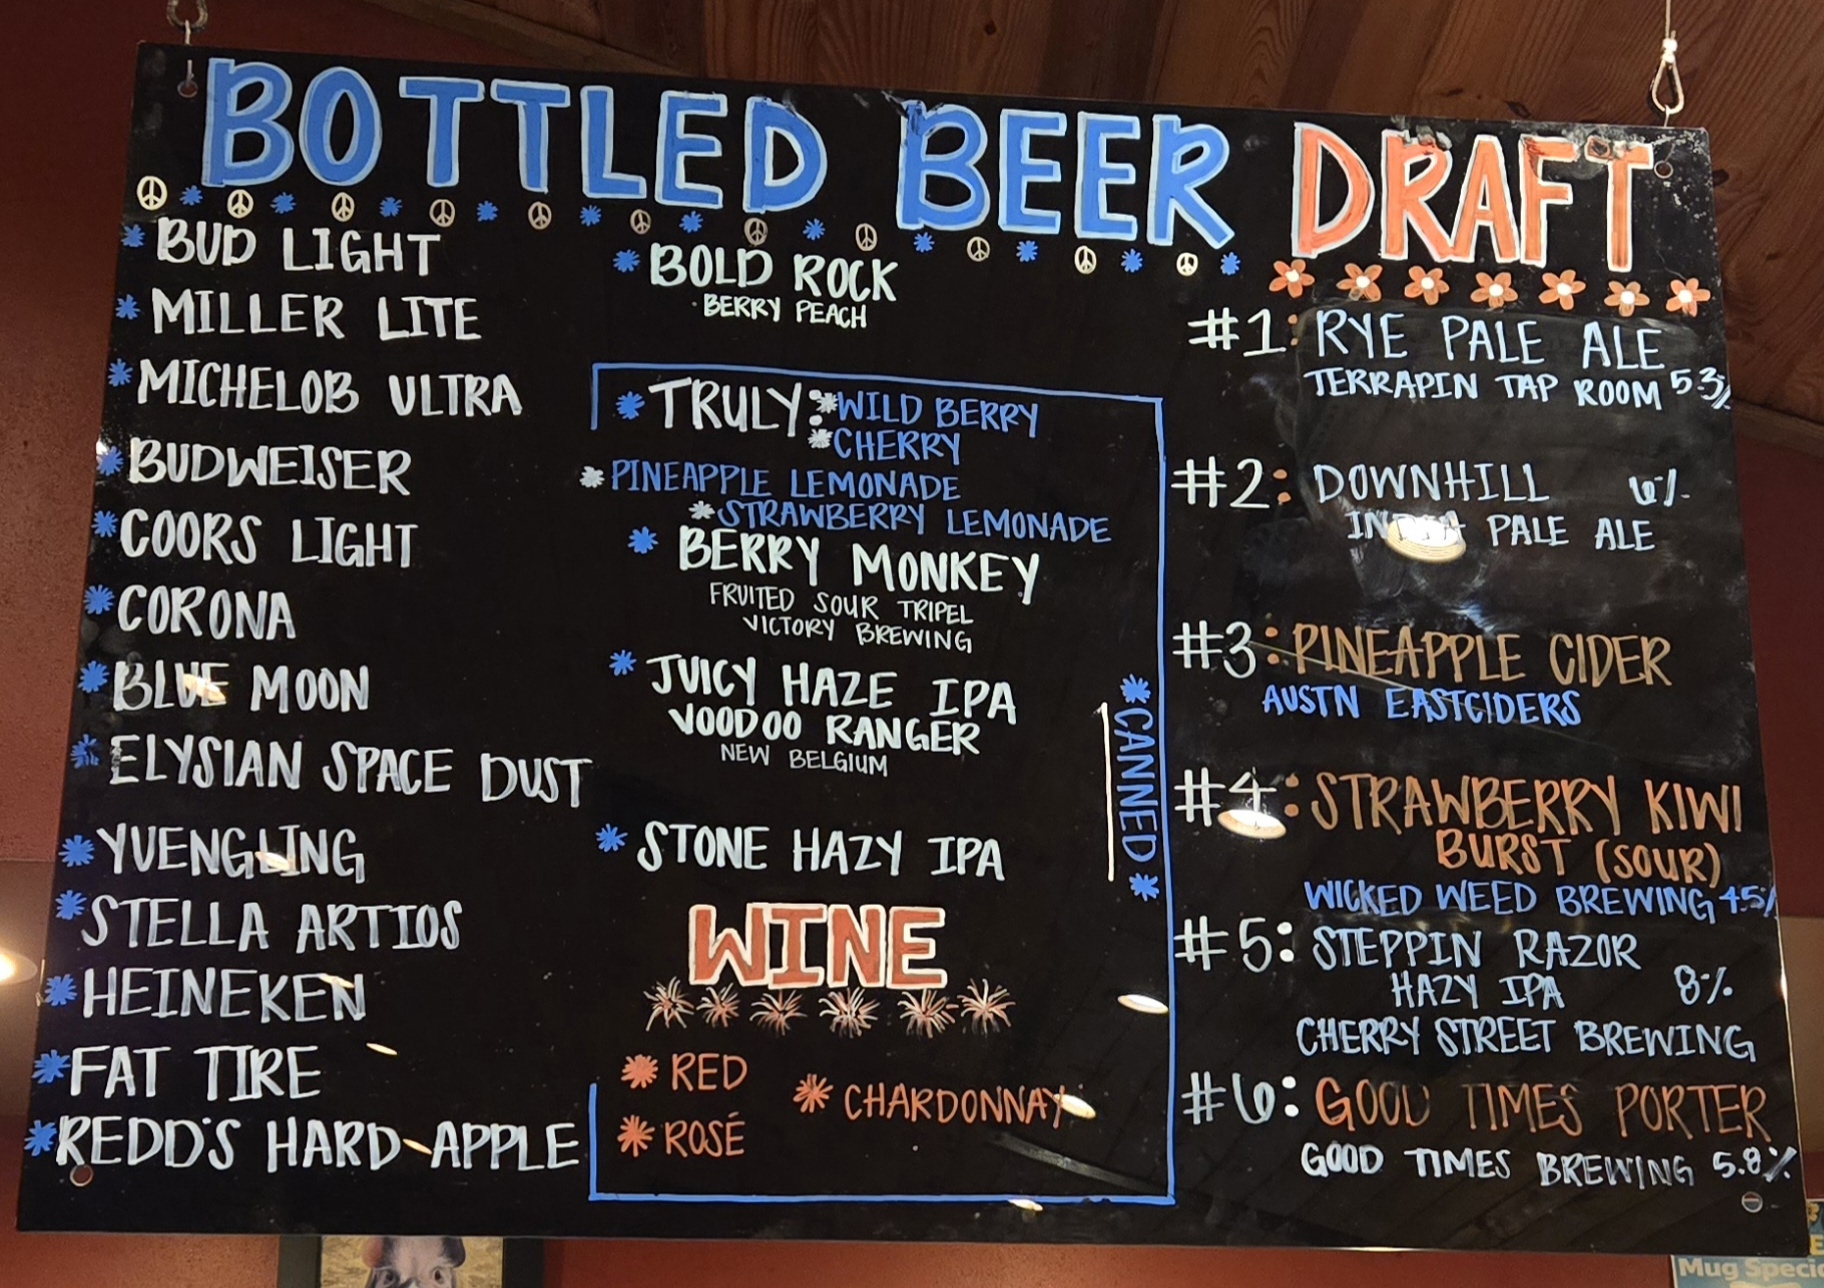 BOTTLED BEER
BUD LIGHT
MILLER LITE
MICHELOB ULTRA
BUDWEISER
COORS LIGHT
CORONA
BLUE MOON
ELYSIAN SPACE DUST
YUENGLING
STELLA ARTIOS
HEINEKEN
FAT TIRE
REDD'S HARD APPLE
BOLD ROCK
BERRY PEACH
TRULY: WILD BERRY
CHERRY
PINEAPPLE LEMONADE
STRAWBERRY LEMONADE
BERRY MONKEY
FRUITED SOUR TRIPEL
VICTORY BREWING
JUICY HAZE IPA
VOODOO RANGER
NEW BELGIUM
STONE HAZY IPA
CANNED
WINE
RED
ROSÉ
CHARDONNAY
DRAFT
#1: RYE PALE ALE
TERRAPIN TAP ROOM 5.3%
#2: DOWNHILL 6%
INDIA PALE ALE
#3: PINEAPPLE CIDER
AUSTN EASTCIDERS
#4: STRAWBERRY KIWI
BURST (SOUR)
WICKED WEED BREWING 4.5%
#5: STEPPIN RAZOR
HAZY IPA 8%
CHERRY STREET BREWING
#6: GOOD TIMES PORTER
GOOD TIMES BREWING 5.8%
Mug